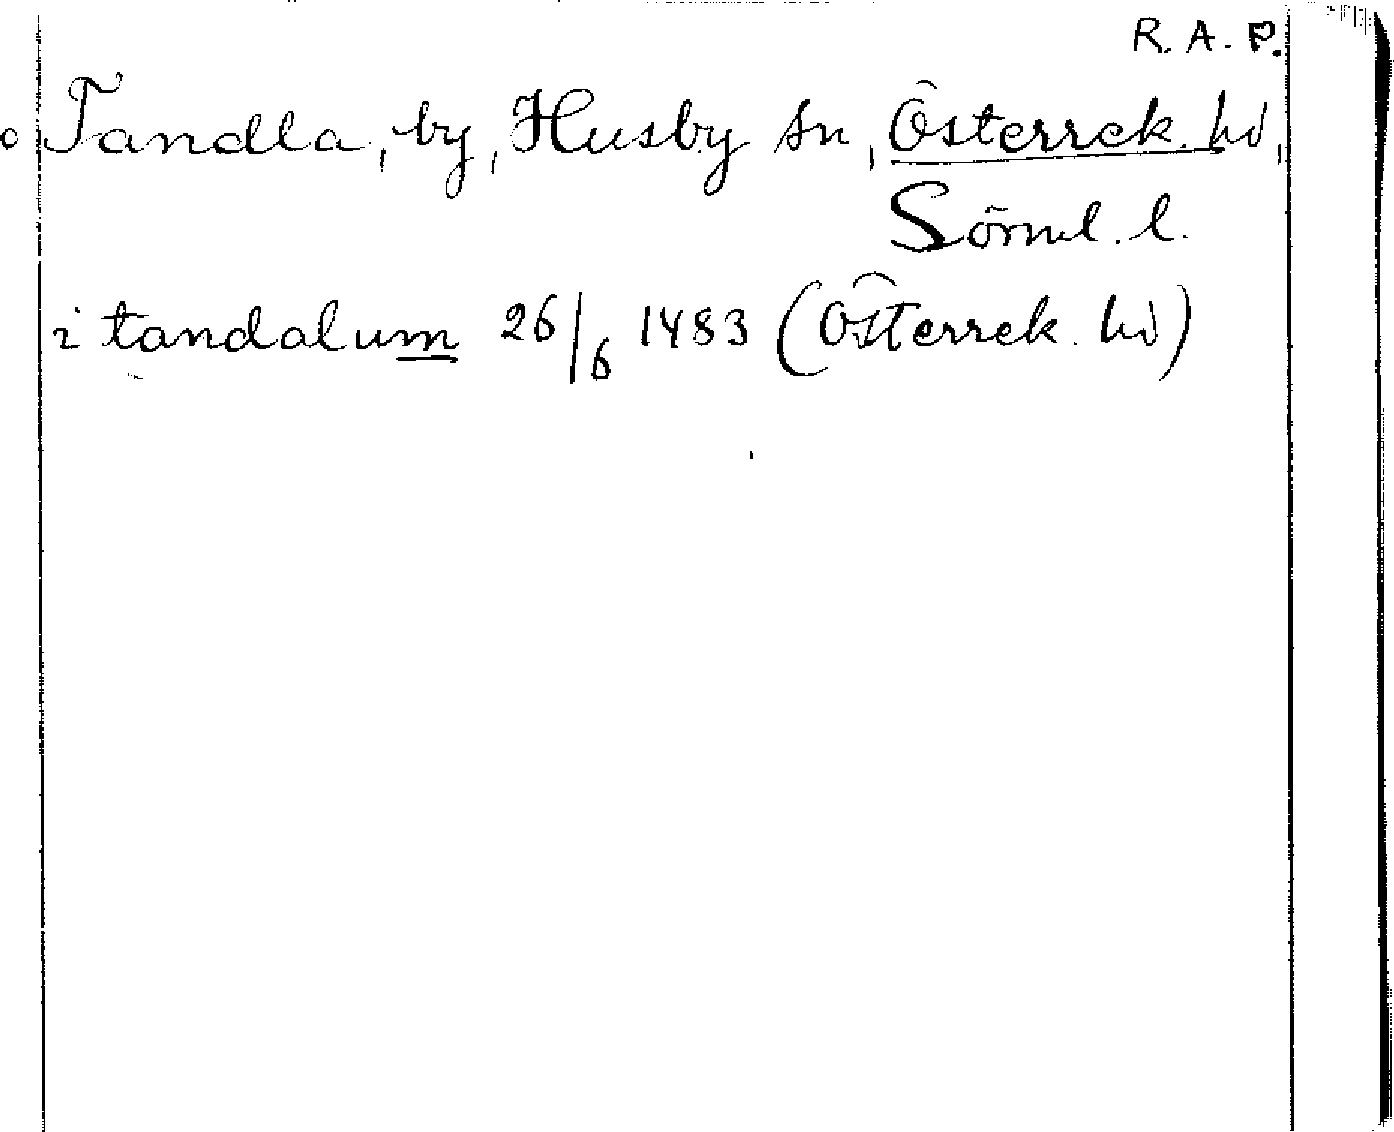 R. A. P.
Tandla, by, Husby sn, Österrek. hd,
Sörml. l.
i tandalum 26/6 1483 (Österrek. hd)